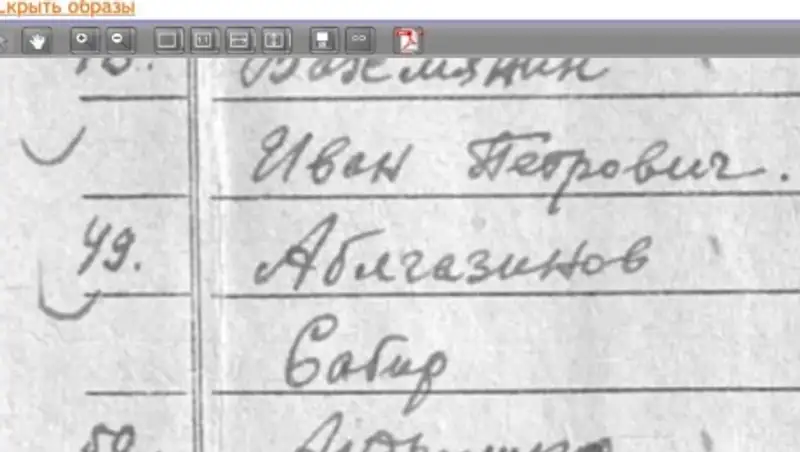 крыть образы
Иван Петрович.
49. Аблгазинов
Сабир